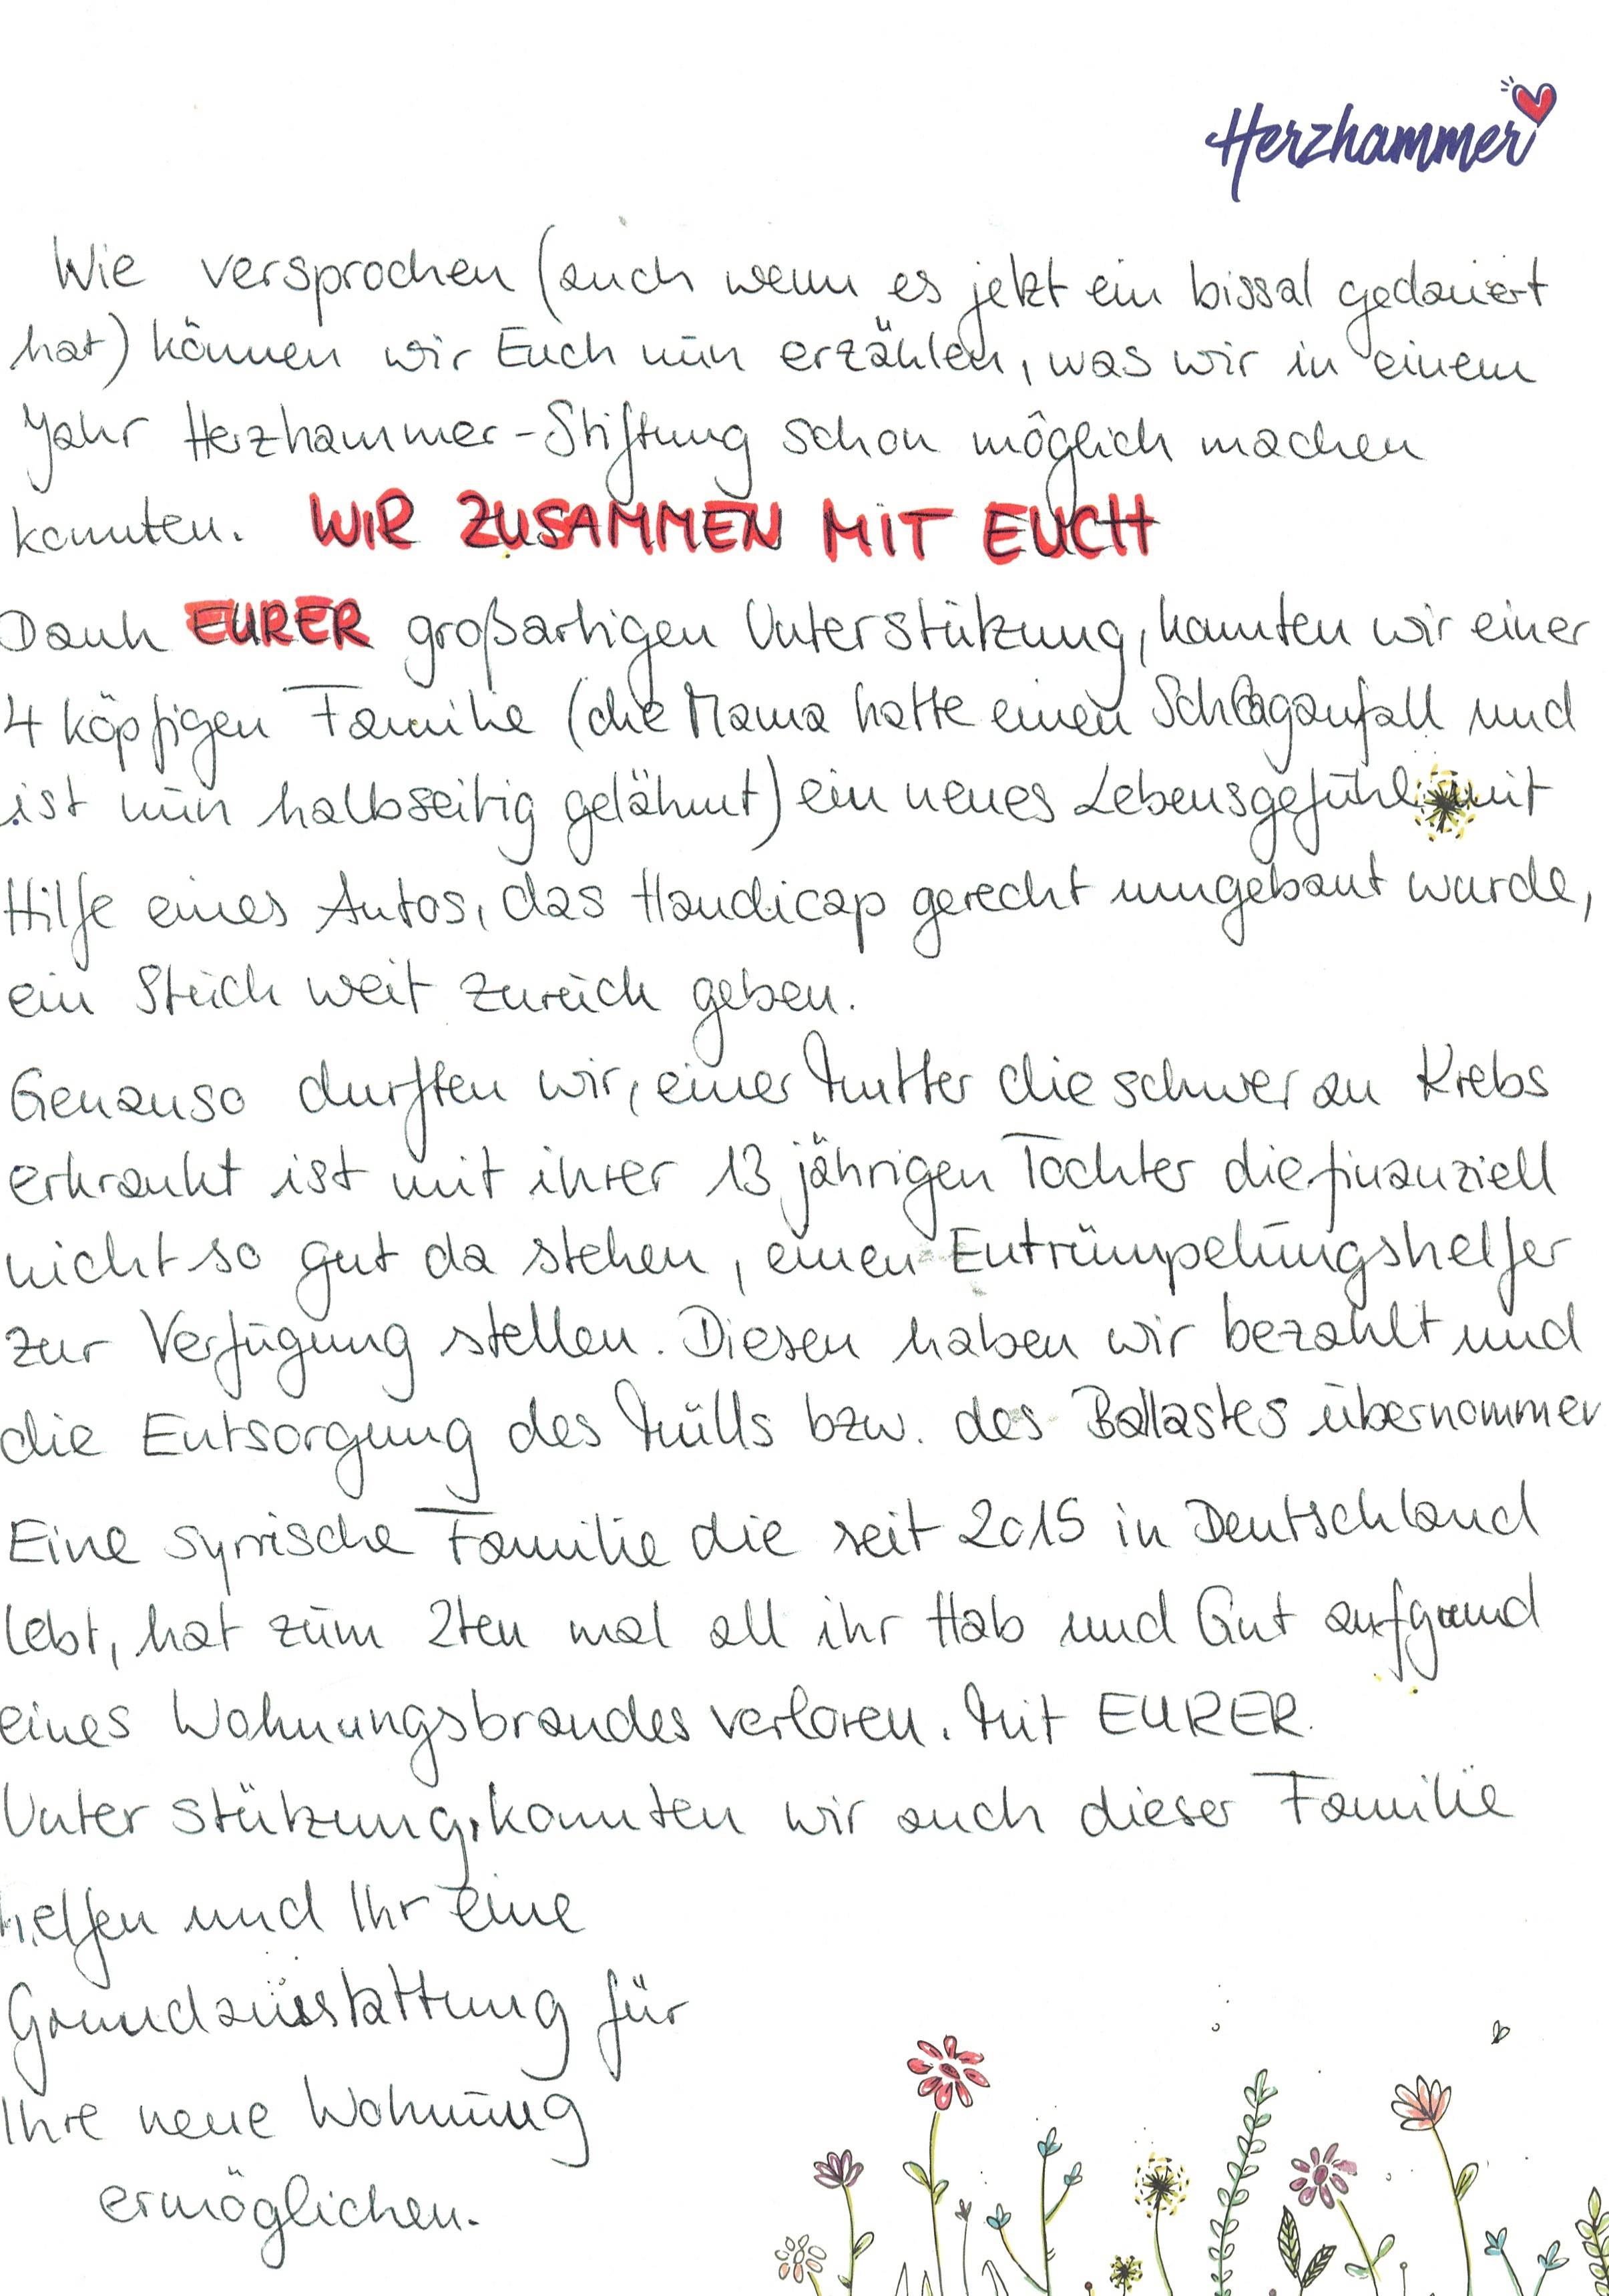 Herzhammer
Wie versprochen (auch wenn es jetzt ein bissal gedauert
hat) können wir Euch nun erzählen, was wir in einem
Jahr Herzhammer-Stiftung schon möglich machen
konnten. WIR ZUSAMMEN MIT EUCH
Dank EURER großartigen Unterstützung, konnten wir einer
4 köpfigen Familie (die Mama hatte einen Schlaganfall und
ist nun halbseitig gelähmt) ein neues Lebensgefühl mit
Hilfe eines Autos, das Handicap gerecht umgebaut wurde,
ein Stück weit zurück geben.
Genauso durften wir, einer Mutter die schwer an Krebs
erkrankt ist mit ihrer 13 jährigen Tochter die finanziell
nicht so gut da stehen, einen Entrümpelungshelfer
zur Verfügung stellen. Diesen haben wir bezahlt und
die Entsorgung des Mülls bzw. des Ballastes übernommen
Eine syrrische Familie die seit 2015 in Deutschland
lebt, hat zum 2ten mal all ihr Hab und Gut aufgrund
eines Wohnungsbrandes verloren. Mit EURER
Unterstützung, konnten wir auch dieser Familie
helfen und Ihr eine
Grundausstattung für
Ihre neue Wohnung
ermöglichen.